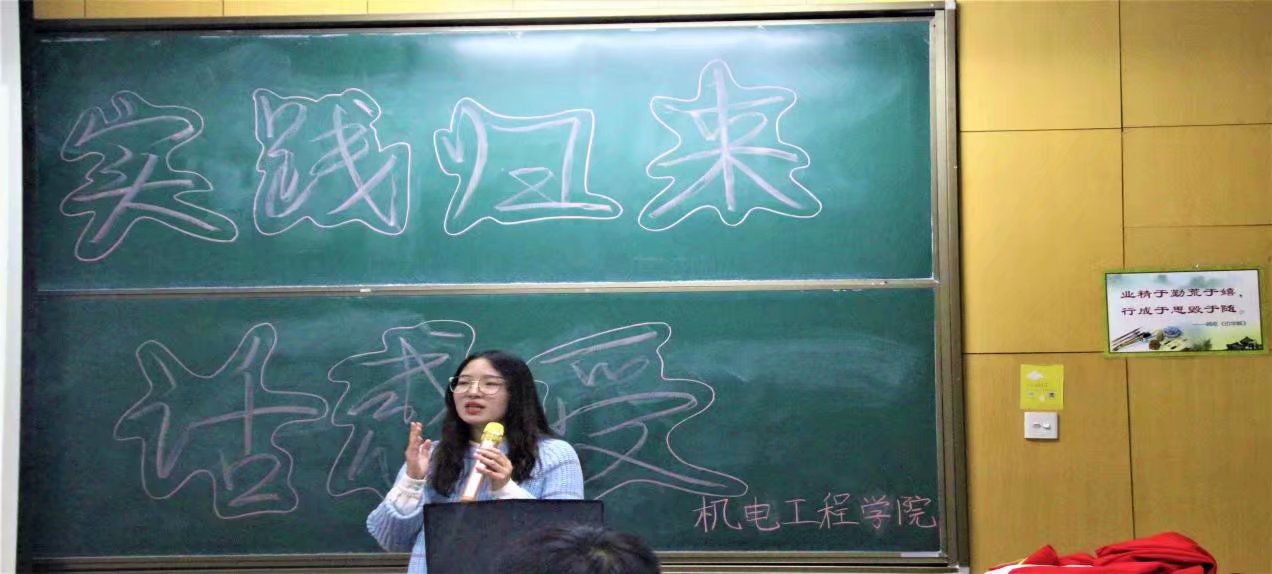 实践归来
话感受
机电工程学院
业精于勤荒于嬉，
行成于思毁于随。
——韩愈《进学解》